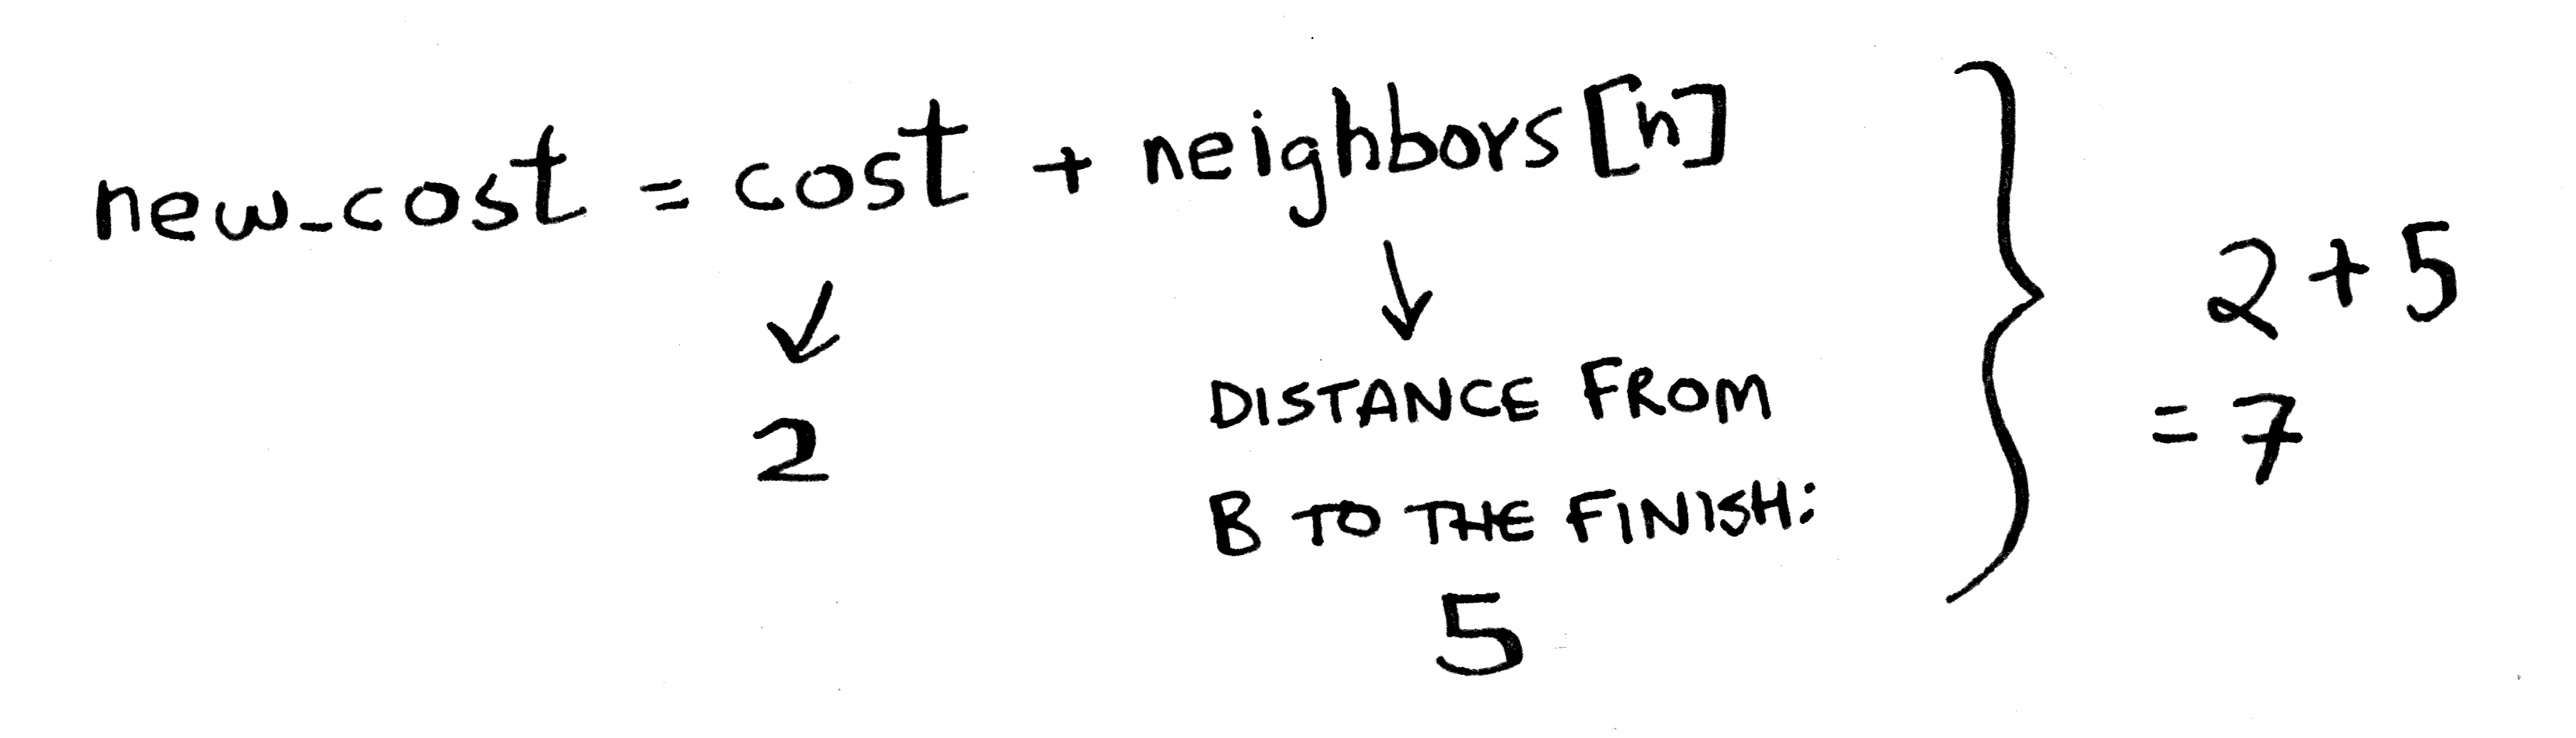 new_cost = cost + neighbors[n]
2
DISTANCE FROM
B TO THE FINISH:
5
2 + 5
= 7